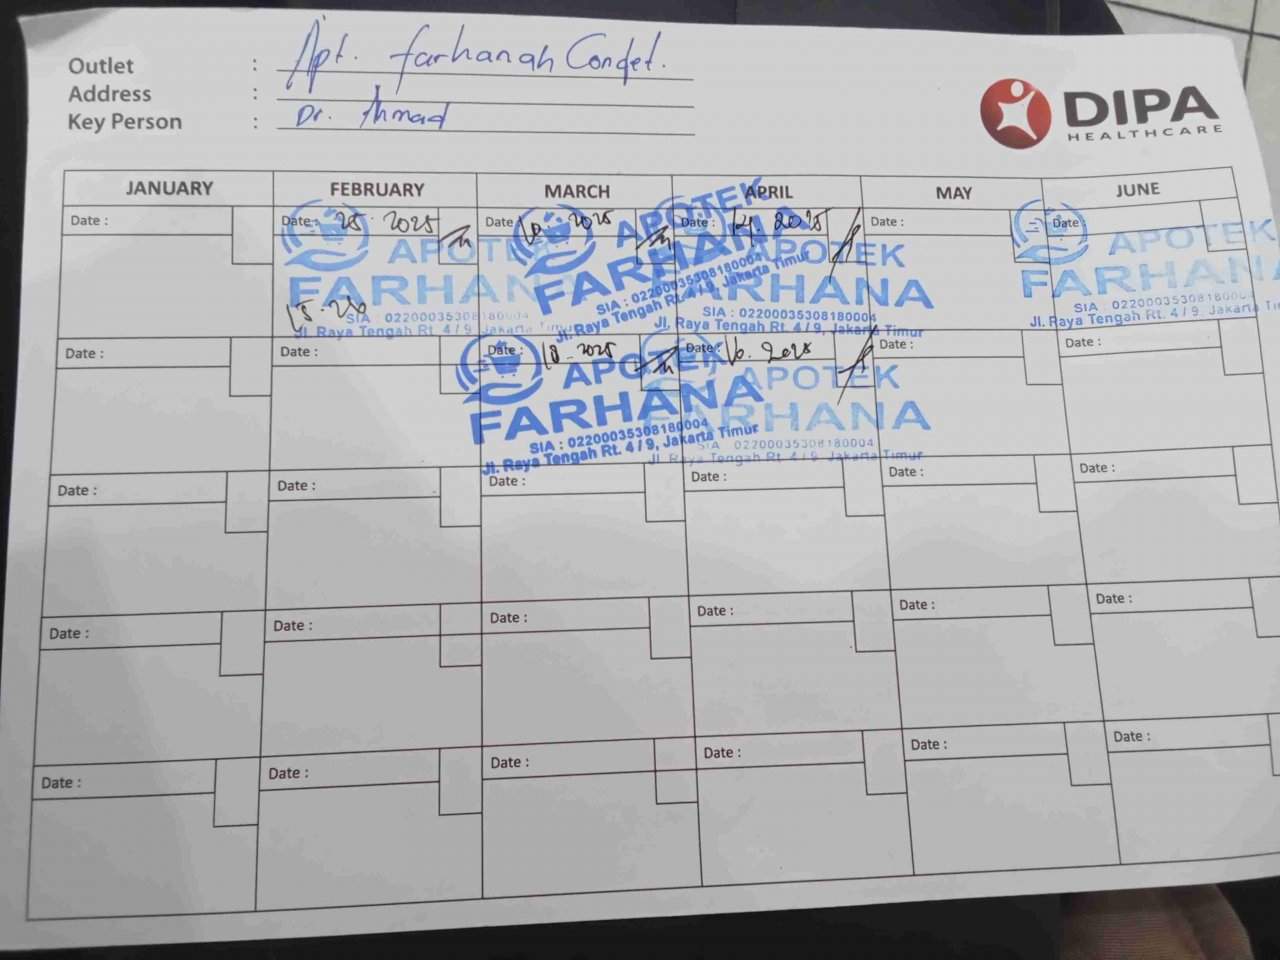 Outlet : Apt. Farhanah Condet.
Address :
Key Person : Dr. Ahmad
DIPA
HEALTHCARE
JANUARY FEBRUARY MARCH APRIL MAY JUNE
Date : Date : 25. 2025 Date : 10. 2025 Date : 14. 2025 Date : Date :
APOTEK APOTEK APOTEK APOTEK
FARHANA FARHANA FARHANA FARHANA
SIA : 02200035308180004 SIA : 02200035308180004 SIA : 02200035308180004 SIA : 02200035308180004
Jl. Raya Tengah Rt. 4 / 9, Jakarta Timur Jl. Raya Tengah Rt. 4 / 9, Jakarta Timur Jl. Raya Tengah Rt. 4 / 9, Jakarta Timur Jl. Raya Tengah Rt. 4 / 9, Jakarta Tim
Date : Date : Date : 18. 2025 Date : 16. 2025 Date : Date :
APOTEK APOTEK
FARHANA FARHANA
SIA : 02200035308180004 SIA : 02200035308180004
Jl. Raya Tengah Rt. 4 / 9, Jakarta Timur Jl. Raya Tengah Rt. 4 / 9, Jakarta Timur
Date : Date : Date : Date : Date : Date :
Date : Date : Date : Date : Date : Date :
Date : Date : Date : Date : Date : Date :